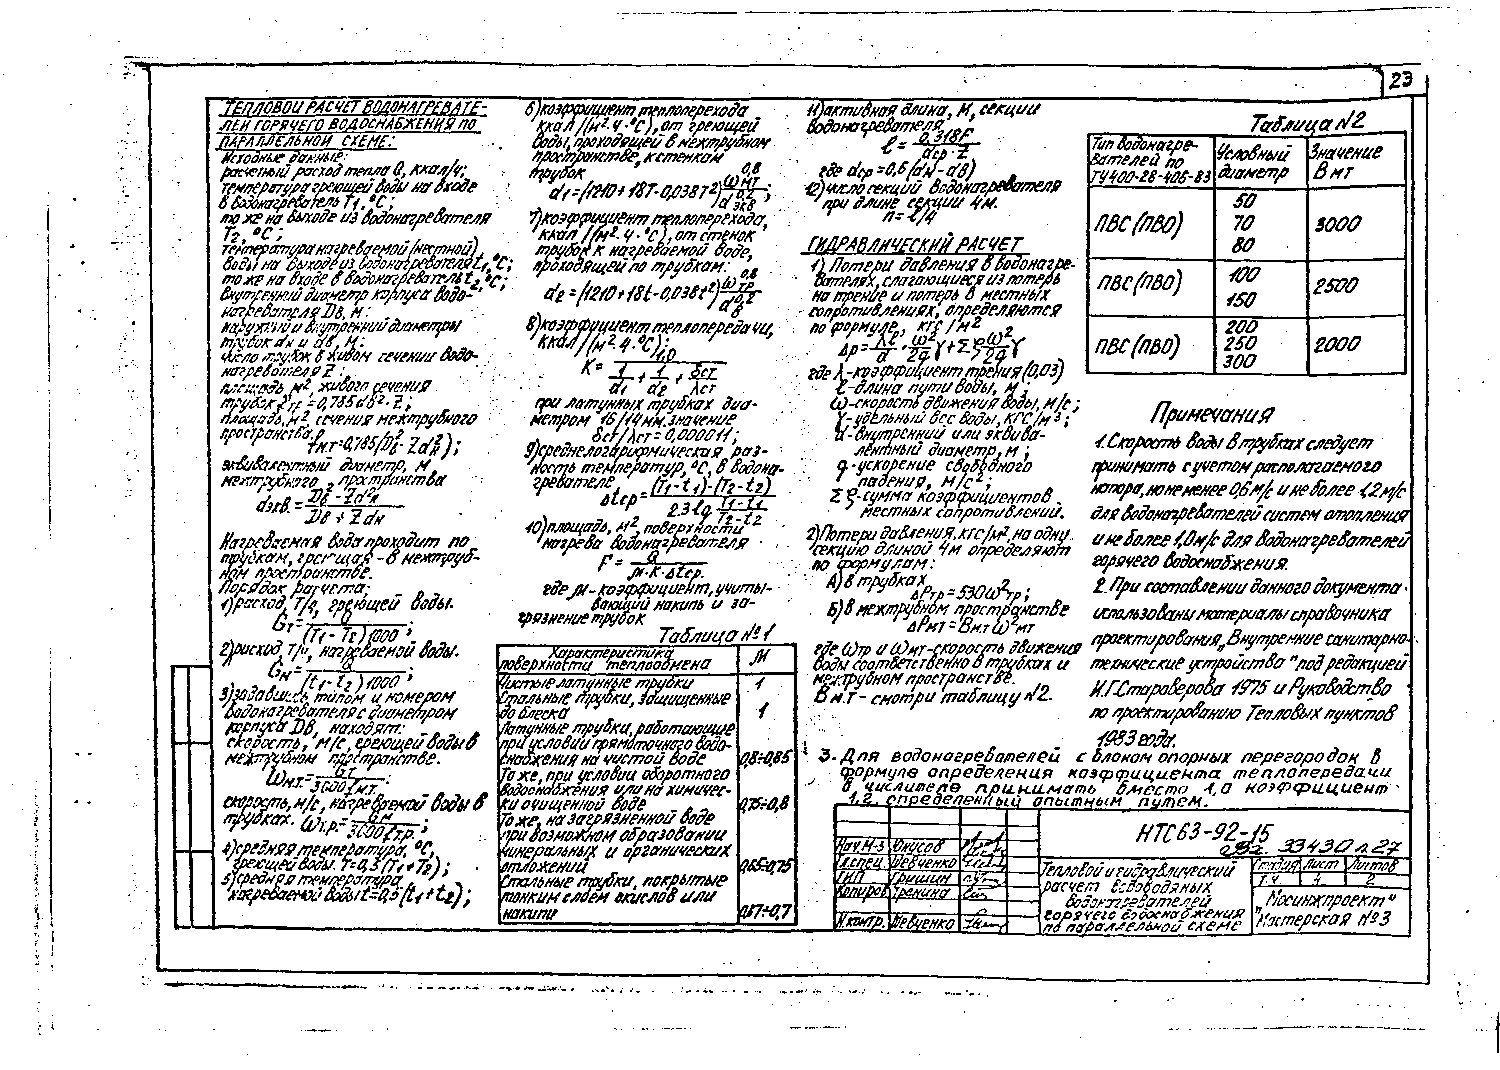 23
ТЕПЛОВОЙ РАСЧЕТ ВОДОНАГРЕВАТЕ-
ЛЕЙ ГОРЯЧЕГО ВОДОСНАБЖЕНИЯ ПО
ПАРАЛЛЕЛЬНОЙ СХЕМЕ.
Исходные данные:
расчетный расход тепла Q, ккал/ч;
температура греющей воды на входе
в водонагреватель T1, °C;
то же на выходе из водонагревателя
T2, °C;
температура нагреваемой (местной)
воды на выходе из водонагревателя t1, °C;
то же на входе в водонагреватель t2, °C;
внутренний диаметр корпуса водо-
нагревателя Dв, м;
наружный и внутренний диаметры
трубок dн и dв, м;
число трубок в живом сечении водо-
нагревателя Z;
площадь, м², живого сечения
трубок fтр=0,785dв²·Z;
площадь, м², сечения межтрубного
пространства
fмт=0,785(Dв²-Zdн²);
эквивалентный диаметр, м
межтрубного пространства
dэкв.=(Dв²-Zdн²)/(Dв+Zdн)
Нагреваемая вода проходит по
трубкам, греющая - в межтруб-
ном пространстве.
Порядок расчета:
1) расход, т/ч, греющей воды.
Gт=Q/((T1-T2)1000);
2) расход, т/ч, нагреваемой воды.
Gн=Q/((t1-t2)1000);
3) задавшись типом и номером
водонагревателя с диаметром
корпуса Dв, находят:
скорость, м/с, греющей воды в
межтрубном пространстве.
ωмт.=Gт/(3600fмт.);
скорость, м/с, нагреваемой воды в
трубках. ωтр.=Gн/(3600fтр.);
4) средняя температура, °C,
греющей воды T=0,5(T1+T2);
5) средняя температура
нагреваемой воды t=0,5(t1+t2);
6) коэффициент теплоперехода
ккал/(м²·ч·°C), от греющей
воды, проходящей в межтрубном
пространстве, к стенкам
трубок
α1=(1210+18T-0,038T²)ωмт^0,8/dэкв^0,2;
7) коэффициент теплоперехода,
ккал/(м²·ч·°C), от стенок
трубок к нагреваемой воде,
проходящей по трубкам:
α2=(1210+18t-0,038t²)ωтр^0,8/dв^0,2
8) коэффициент теплопередачи,
ккал/(м²·ч·°C):
K=1,0/(1/α1+1/α2+δст/λст)
при латунных трубках диа-
метром 16/14мм.значение
δст/λст=0,000011;
9) среднелогарифмическая раз-
ность температур, °C, в водона-
гревателе
Δtср=((T1-t1)-(T2-t2))/(2,3lg (T1-t1)/(T2-t2))
10) площадь, м², поверхности
нагрева водонагревателя
F=Q/(μ·K·Δtср.)
где μ-коэффициент, учиты-
вающий накипь и за-
грязнение трубок
Таблица №1
Характеристика поверхности теплообмена | μ
Чистые латунные трубки | 1
Стальные трубки, защищенные
до блеска | 1
Латунные трубки, работающие
при условии прямоточного водо-
снабжения на чистой воде | 0,8÷0,85
То же, при условии оборотного
водоснабжения или на химичес-
ки очищенной воде | 0,75÷0,8
То же, на загрязненной воде
при возможном образовании
минеральных и органических
отложений | 0,65÷0,75
Стальные трубки, покрытые
тонким слоем окислов или
накипи | 0,67÷0,7
11) активная длина, м, секции
водонагревателя
ℓ=0,318F/(dср·Z)
где dср=0,5(dн-dв)
12) число секций водонагревателя
при длине секции 4м.
n=ℓ/4
ГИДРАВЛИЧЕСКИЙ РАСЧЕТ
1) Потери давления в водонагре-
вателях, слагающиеся из потерь
на трение и потерь в местных
сопротивлениях, определяются
по формуле, кгс/м²
Δp=λℓ/d·ω²/2g γ+Σξω²/2g γ
где λ-коэффициент трения (0,03)
ℓ-длина пути воды, м
ω-скорость движения воды, м/с;
γ-удельный вес воды, кгс/м³;
d-внутренний или эквива-
лентный диаметр, м;
g-ускорение свободного
падения, м/с²;
Σξ-сумма коэффициентов
местных сопротивлений.
2) Потери давления, кгс/м², на одну
секцию длиной 4м определяют
по формулам:
А) в трубках
ΔPтр=530ω²тр;
Б) в межтрубном пространстве
ΔPмт=Bмтω²мт
где ωтр и ωмт-скорость движения
воды соответственно в трубках и
межтрубном пространстве.
Вм.т- смотри таблицу №2.
Таблица №2
Тип водонагре-
вателей по
ТУ400-28-406-83 | Условный
диаметр | Значение
Вмт
ПВС (ПВО) | 50 70 80 | 3000
ПВС (ПВО) | 100 150 | 2500
ПВС (ПВО) | 200 250 300 | 2000
Примечания
1. Скорость воды в трубках следует
принимать с учетом располагаемого
напора, но не менее 0,6м/с и не более 1,2м/с
для водонагревателей систем отопления
и не более 1,0м/с для водонагревателей
горячего водоснабжения.
2. При составлении данного документа
использованы материалы справочника
проектирования „Внутренние санитарно-
технические устройства" под редакцией
И.Г.Староверова 1975 и Руководство
по проектированию Тепловых пунктов
1983 года.
3. Для водонагревателей с блоком опорных перегородок в
формуле определения коэффициента теплопередачи
в числителе принимать вместо 1,0 коэффициент
1,2, определенный опытным путем.
НТС63-92-15
33430 л.27
Нач.М-3 Юнусов
Гл.спец. Шевченко
ГИП Гришин
Копиров. Гренина
Н.контр. Шевченко
Тепловой и гидравлический
расчет водоводяных
водонагревателей
горячего водоснабжения
по параллельной схеме
Стадия Лист Листов
Т.Ч 1 2
„Мосинжпроект"
Мастерская №3